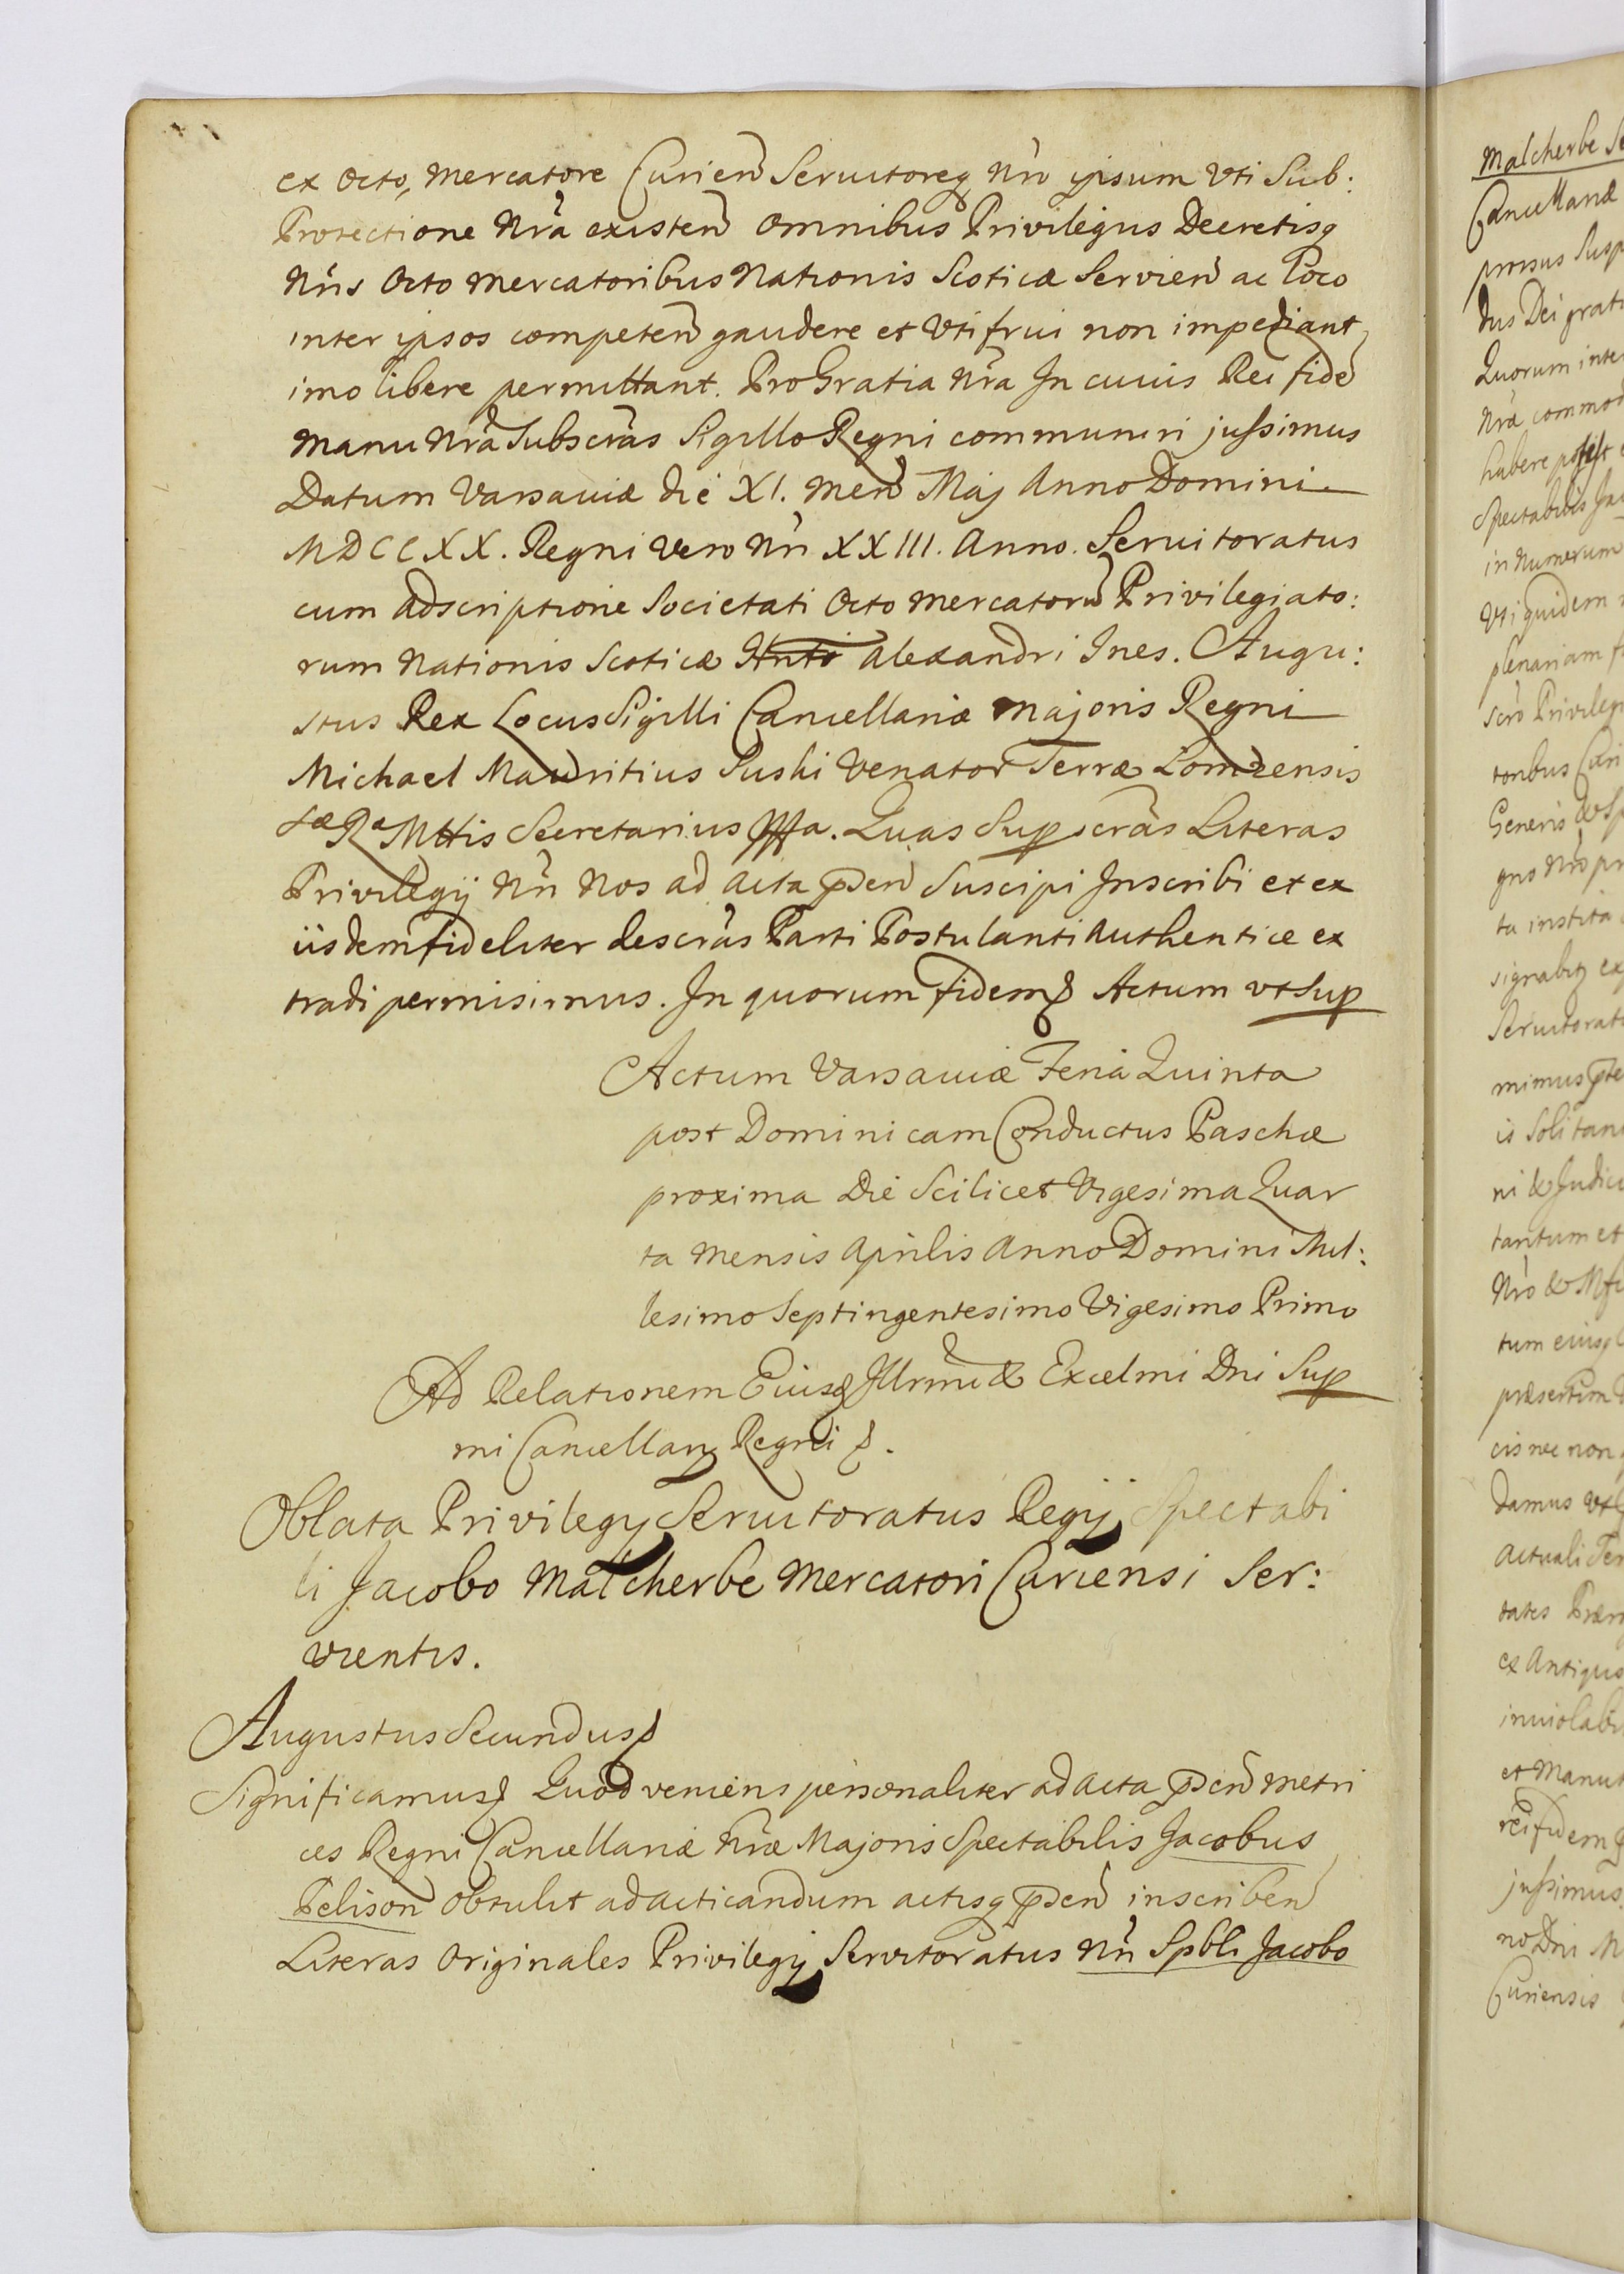 ex Octo, Mercatore Curien Servitoreq Nro ipsum Vti Sub:
Protectione Nra existen omnibus Privilegiis Decretisq
Nris Octo Mercatoribus Nationis Scoticæ Servien ac Loco
inter ipsos competen gaudere et Vti frui non impediant,
imo libere permittant. Pro Gratia Nra In cuius Rei fidē
Manu Nra Subscras Sigillo Regni communiri jussimus
Datum Varsaviæ die XI. Men Maj Anno Domini
MDCCXX. Regni vero Nri XXIII. Anno. Servitoratus
cum adscriptione Societati Octo Mercatorū Privilegiato:
rum Nationis Scoticæ Alexandri Ines. Augu:
stus Rex Locus Sigilli Cancellariæ Majoris Regni
Michael Mauritius Suski Venator Terræ Lomzensis
Sæ Ræ Mttis Secretarius Mppa. Quas Sup scras Literas
Privilegij Nri Nos ad Acta pden Suscipi Inscribi et ex
iisdem fideliter descras Parti Postulanti Authentice ex
tradi permisimus. In quorum fidem Actum vt Sup
Actum Varsaviæ Feria Quinta
post Dominicam Conductus Paschæ
proxima Die Scilicet Vigesima Quar
ta Mensis Aprilis Anno Domini Mil:
lesimo Septingentesimo Vigesimo Primo
Ad Relationem Eiusd Illrmi & Excelmi Dni Sup
mi Cancellarij Regni
Oblata Privilegij Servitoratus Regij Spectabi
li Jacobo Malcherbe Mercatori Curiensi Ser:
vientis.
Augustus Secundus
Significamus Quod veniens personaliter ad acta pden Metri
ces Regni Cancellariæ Nræ Majoris Spectabilis Jacobus
Pelison obtulit ad acticandum actisq pden inscriben
Literas Originales Privilegij Servitoratus Nri Spbli Jacobo
Malcherbe
Cancellariæ
prorsus
dus Dei
Quorum
Nra
habere
Spectabilis
in Numerum
Vti quidem
plenariam
scro
toribus
Generis
gno Nro
ta instita
Servitorat
mimus
is
ni & Judici
tantum et
Nro
tum
præsertim
cis nec non
Damus
actuali
tates
ex Antiquo
inviolabi
et Manut
rei fidem
jussimus
no Dni M
Curiensis